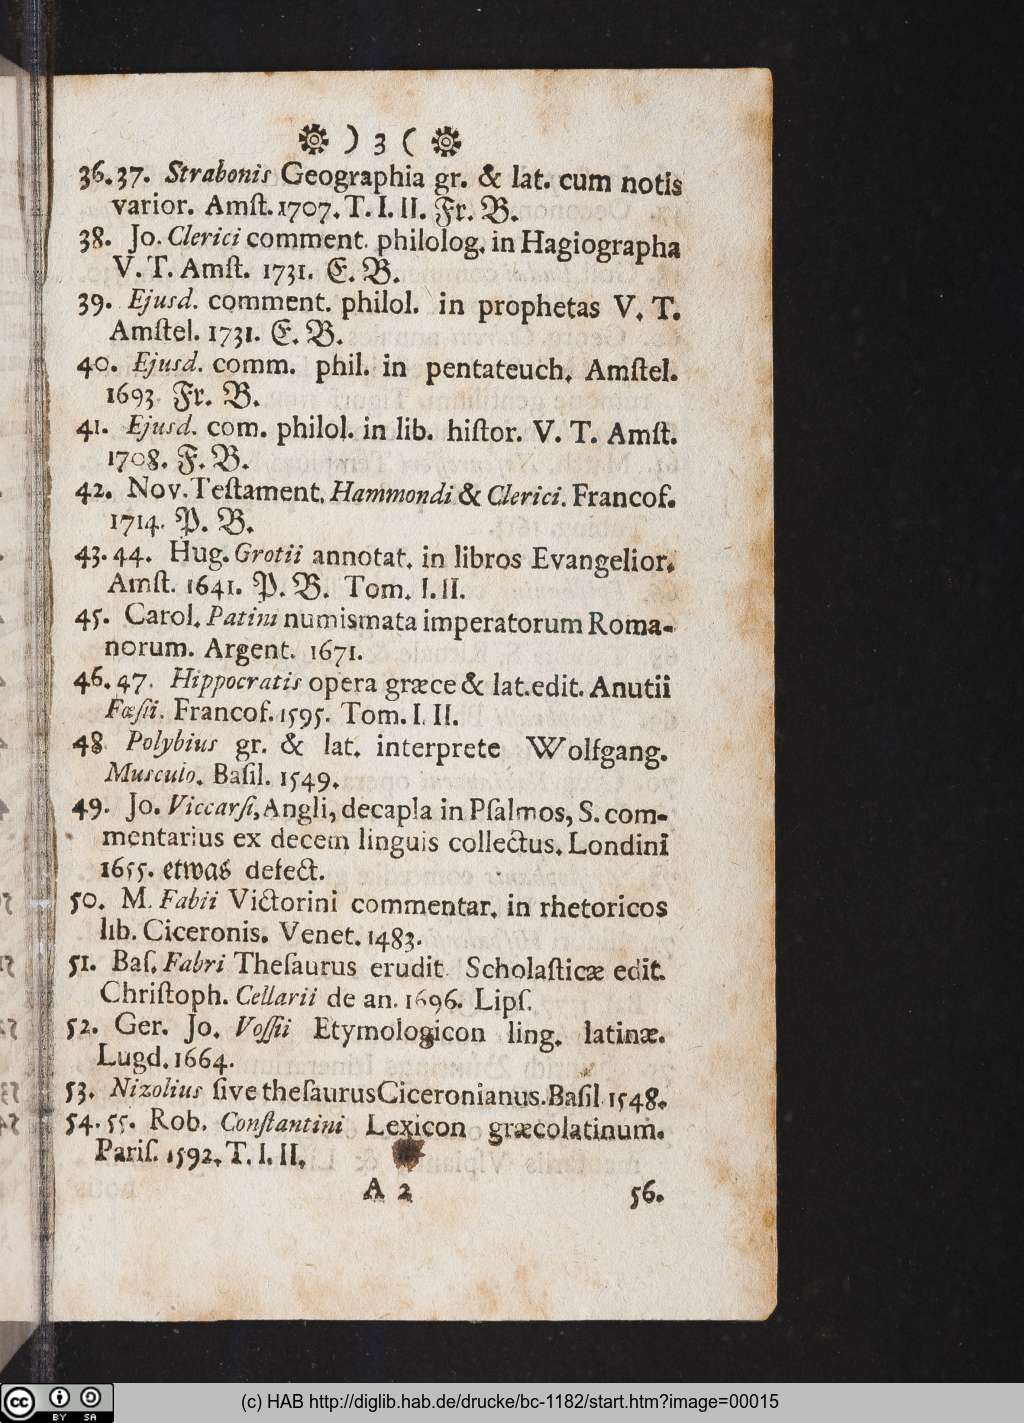 ) 3 (
36.37. Strabonis Geographia gr. & lat. cum notis
varior. Amſt. 1707. T. I. II. Fr. B.
38. Jo. Clerici comment. philolog. in Hagiographa
V. T. Amſt. 1731. E. B.
39. Ejusd. comment. philol. in prophetas V. T.
Amſtel. 1731. E. B.
40. Ejusd. comm. phil. in pentateuch. Amſtel.
1693. Fr. B.
41. Ejusd. com. philol. in lib. hiſtor. V. T. Amſt.
1708. F. B.
42. Nov. Teſtament. Hammondi & Clerici. Francof.
1714. P. B.
43. 44. Hug. Grotii annotat. in libros Evangelior.
Amſt. 1641. P. B. Tom. I. II.
45. Carol. Patini numismata imperatorum Roma-
norum. Argent. 1671.
46. 47. Hippocratis opera græce & lat. edit. Anutii
Fœſii. Francof. 1595. Tom. I. II.
48 Polybius gr. & lat. interprete Wolfgang.
Musculo. Baſil. 1549.
49. Jo. Viccarſi, Angli, decapla in Pſalmos, S. com-
mentarius ex decem linguis collectus. Londini
1655. etwas defect.
50. M. Fabii Victorini commentar. in rhetoricos
lib. Ciceronis. Venet. 1483.
51. Baſ. Fabri Theſaurus erudit. Scholaſticæ edit.
Chriſtoph. Cellarii de an. 1696. Lipſ.
52. Ger. Jo. Voſſii Etymologicon ling. latinæ.
Lugd. 1664.
53. Nizolius ſive theſaurus Ciceronianus. Baſil. 1548.
54. 55. Rob. Conſtantini Lexicon græcolatinum.
Pariſ. 1592. T. I. II.
A 2 56.
(c) HAB http://diglib.hab.de/drucke/bc-1182/start.htm?image=00015
CC BY SA